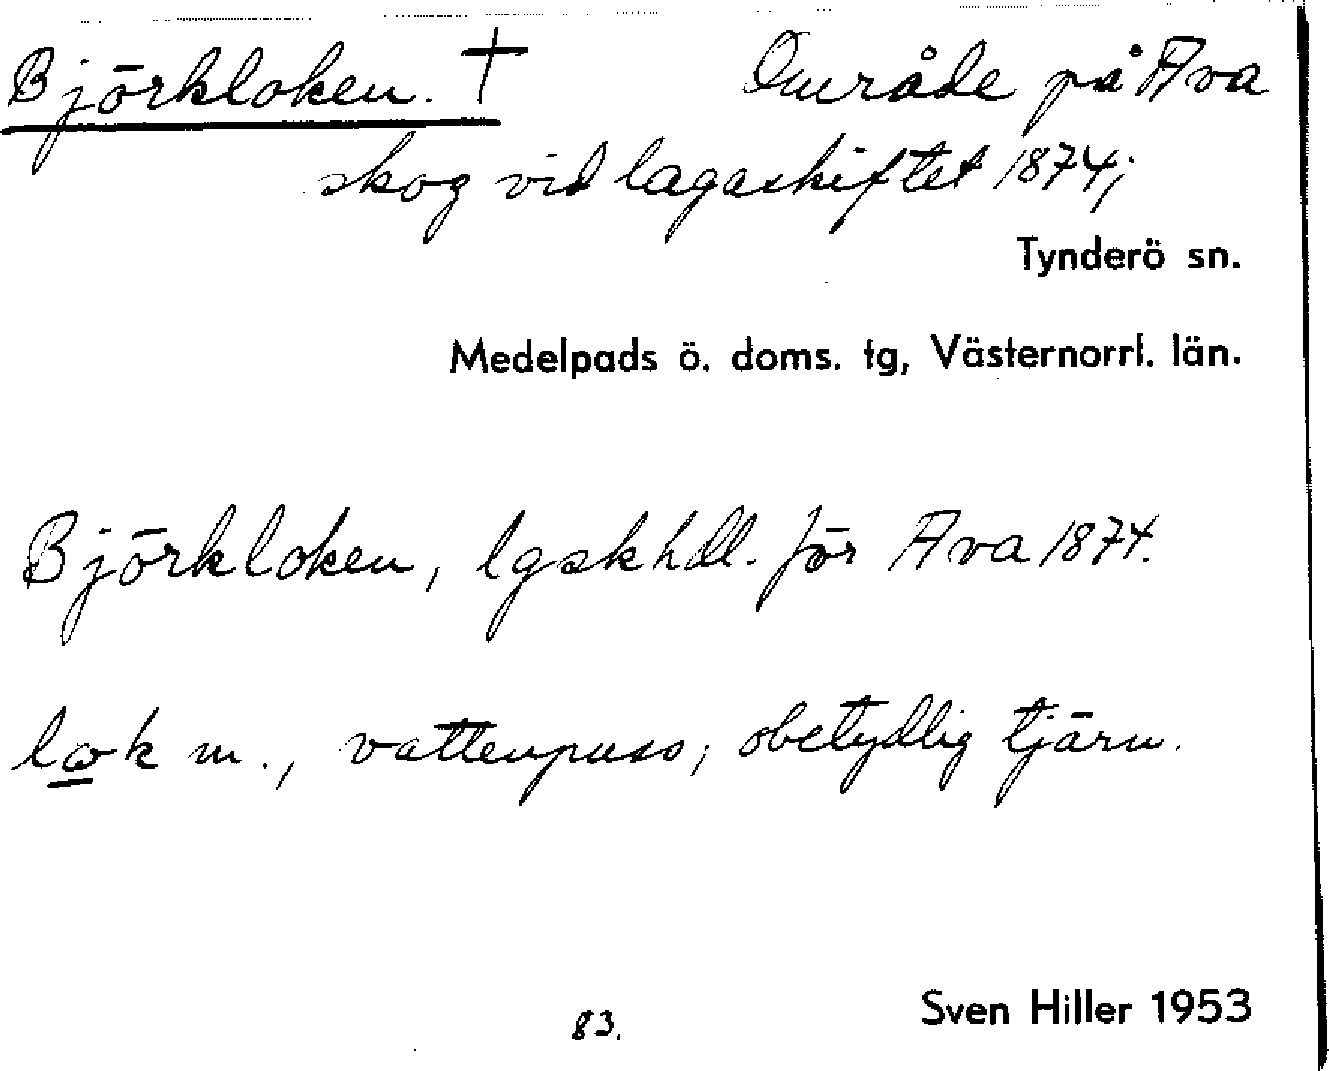 Björkloken. † Område på Åva
skog vid lagaskiftet 1874;
Tynderö sn.
Medelpads ö. doms. tg, Västernorrl. län.
Björkloken, lgskhdl. för Åva 1874.
lok m., vattenpuss; obetydlig tjärn.
83.
Sven Hiller 1953